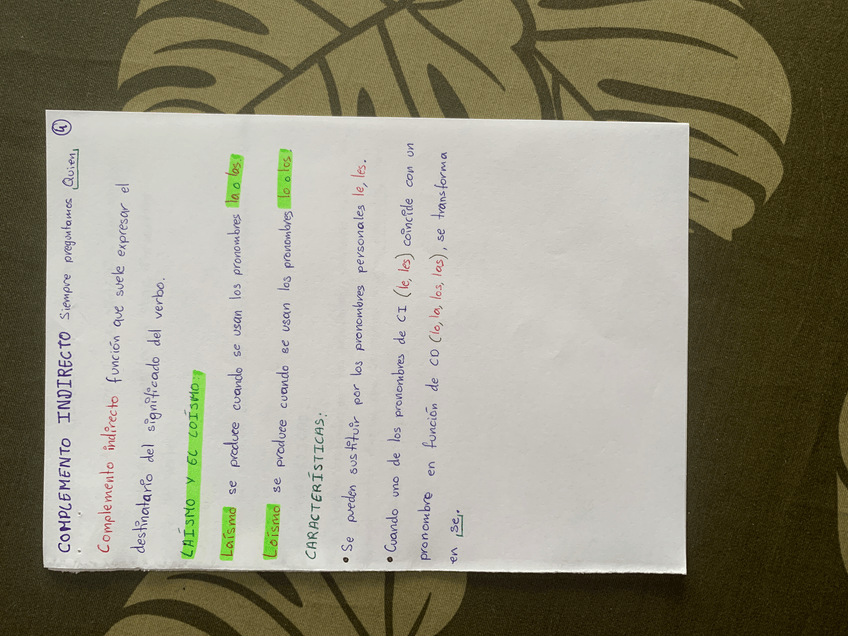 COMPLEMENTO INDIRECTO Siempre preguntamos Quien, 4
Complemento indirecto función que suele expresar el
destinatario del significado del verbo.
LAÍSMO Y EL LOÍSMO:
Laísmo se produce cuando se usan los pronombres la o las.
Loísmo se produce cuando se usan los pronombres lo o los.
CARACTERÍSTICAS:
• Se pueden sustituir por los pronombres personales le, les.
• Cuando uno de los pronombres de CI (le, les) coincide con un
pronombre en función de CD (lo, la, los, las), se transforma
en se.